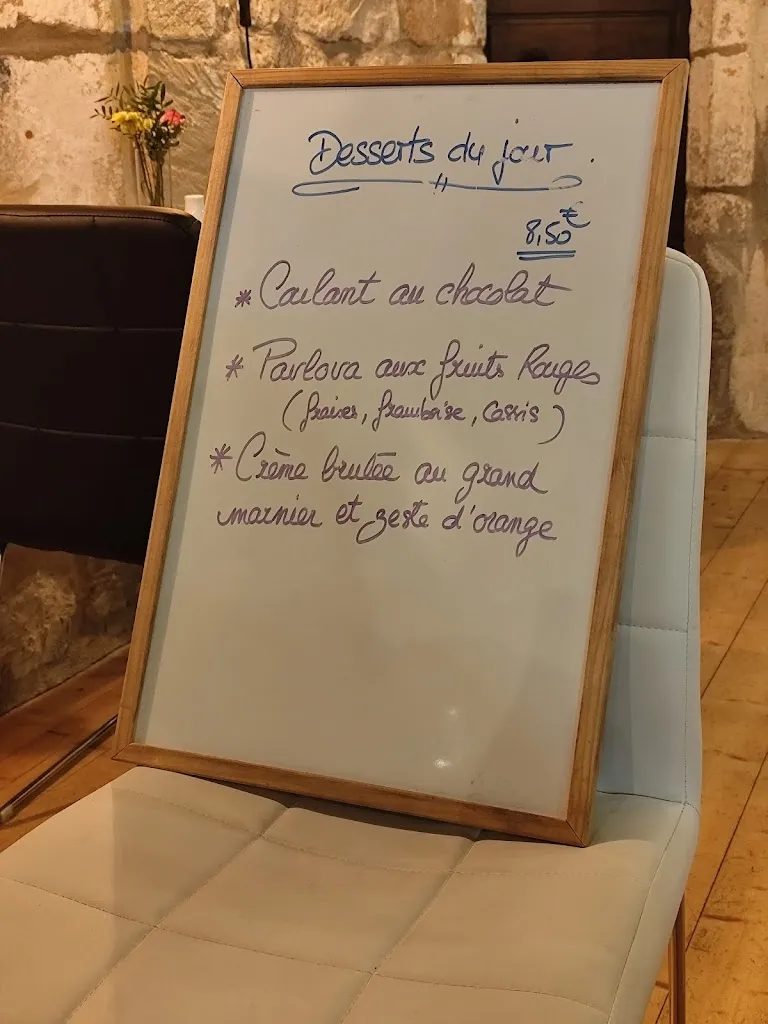 Desserts du jour.
8,50€
* Coulant au chocolat
* Pavlova aux fruits Rouges
(fraises, framboise, Cassis)
* Crème brulée au grand
marnier et zeste d'orange